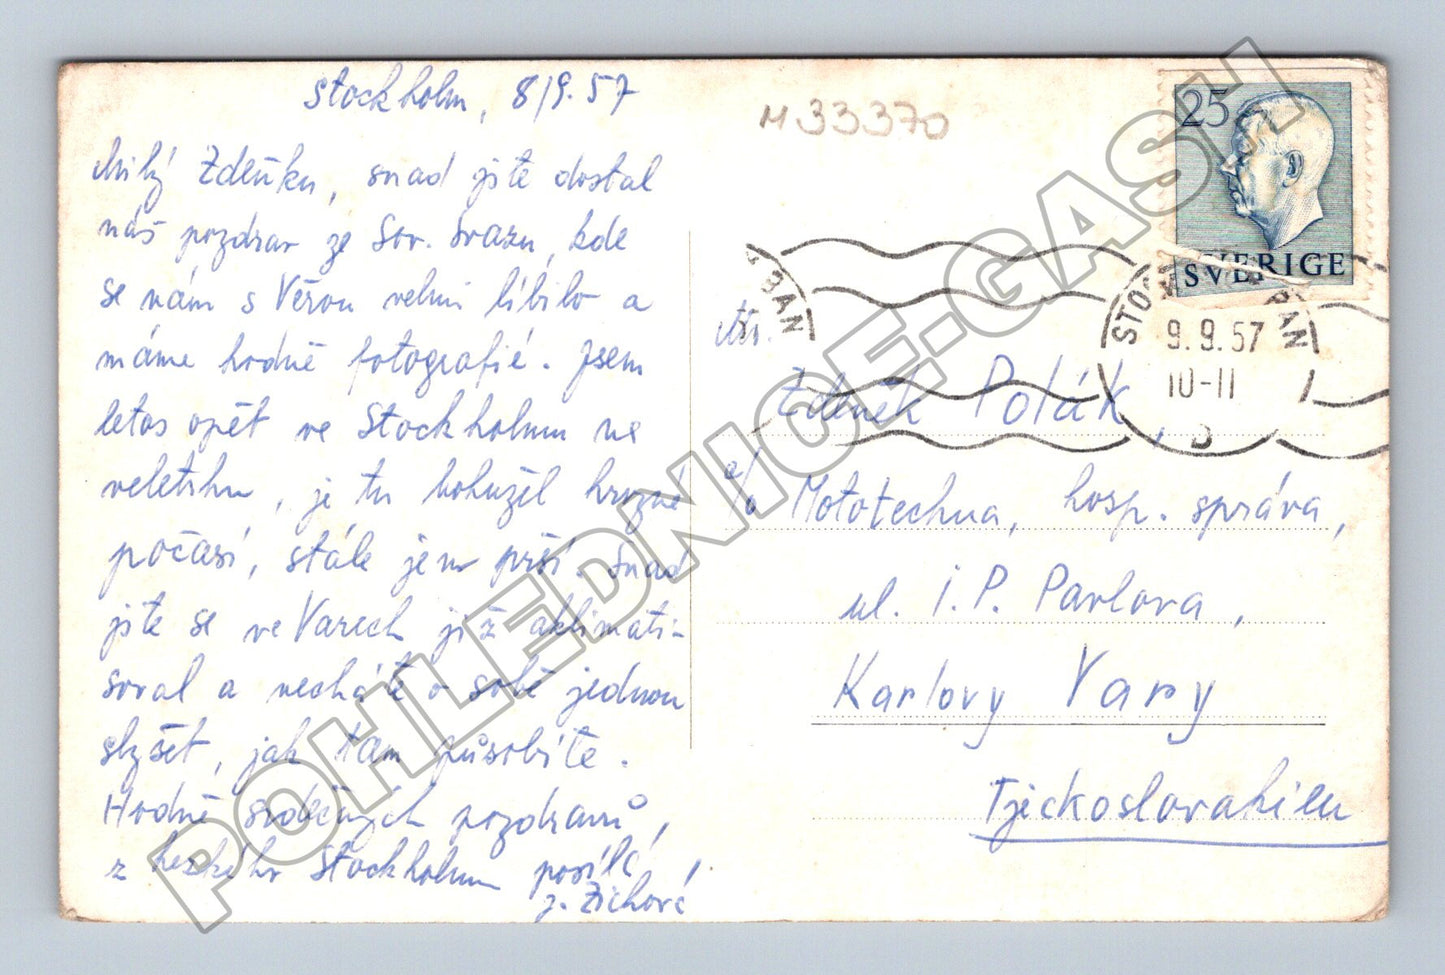 Stockholm, 8/9.57
Milý Zdeňku, snad jste dostal
náš pozdrav ze Sov. Svazu, kde
se nám s Věrou velmi líbilo a
máme hodně fotografií. Jsem
letos opět ve Stockholmu na
veletrhu, je tu bohužel hrozné
počasí, stále jen prší. Snad
jste se ve Varech již aklimati-
soval a necháte o sobě jednou
slyšet, jak tam působíte.
Hodně srdečných pozdravů,
z hezkého Stockholmu posílá,
J. Zichová
M 33370
25
SVERIGE
BAN
STO BAN
9.9.57
10-11
Mr.
Zdeněk Polák,
c/o Mototechna, hosp. správa,
ul. I. P. Pavlova,
Karlovy Vary
Tjeckoslovakien
POHLEDNICE-GASH